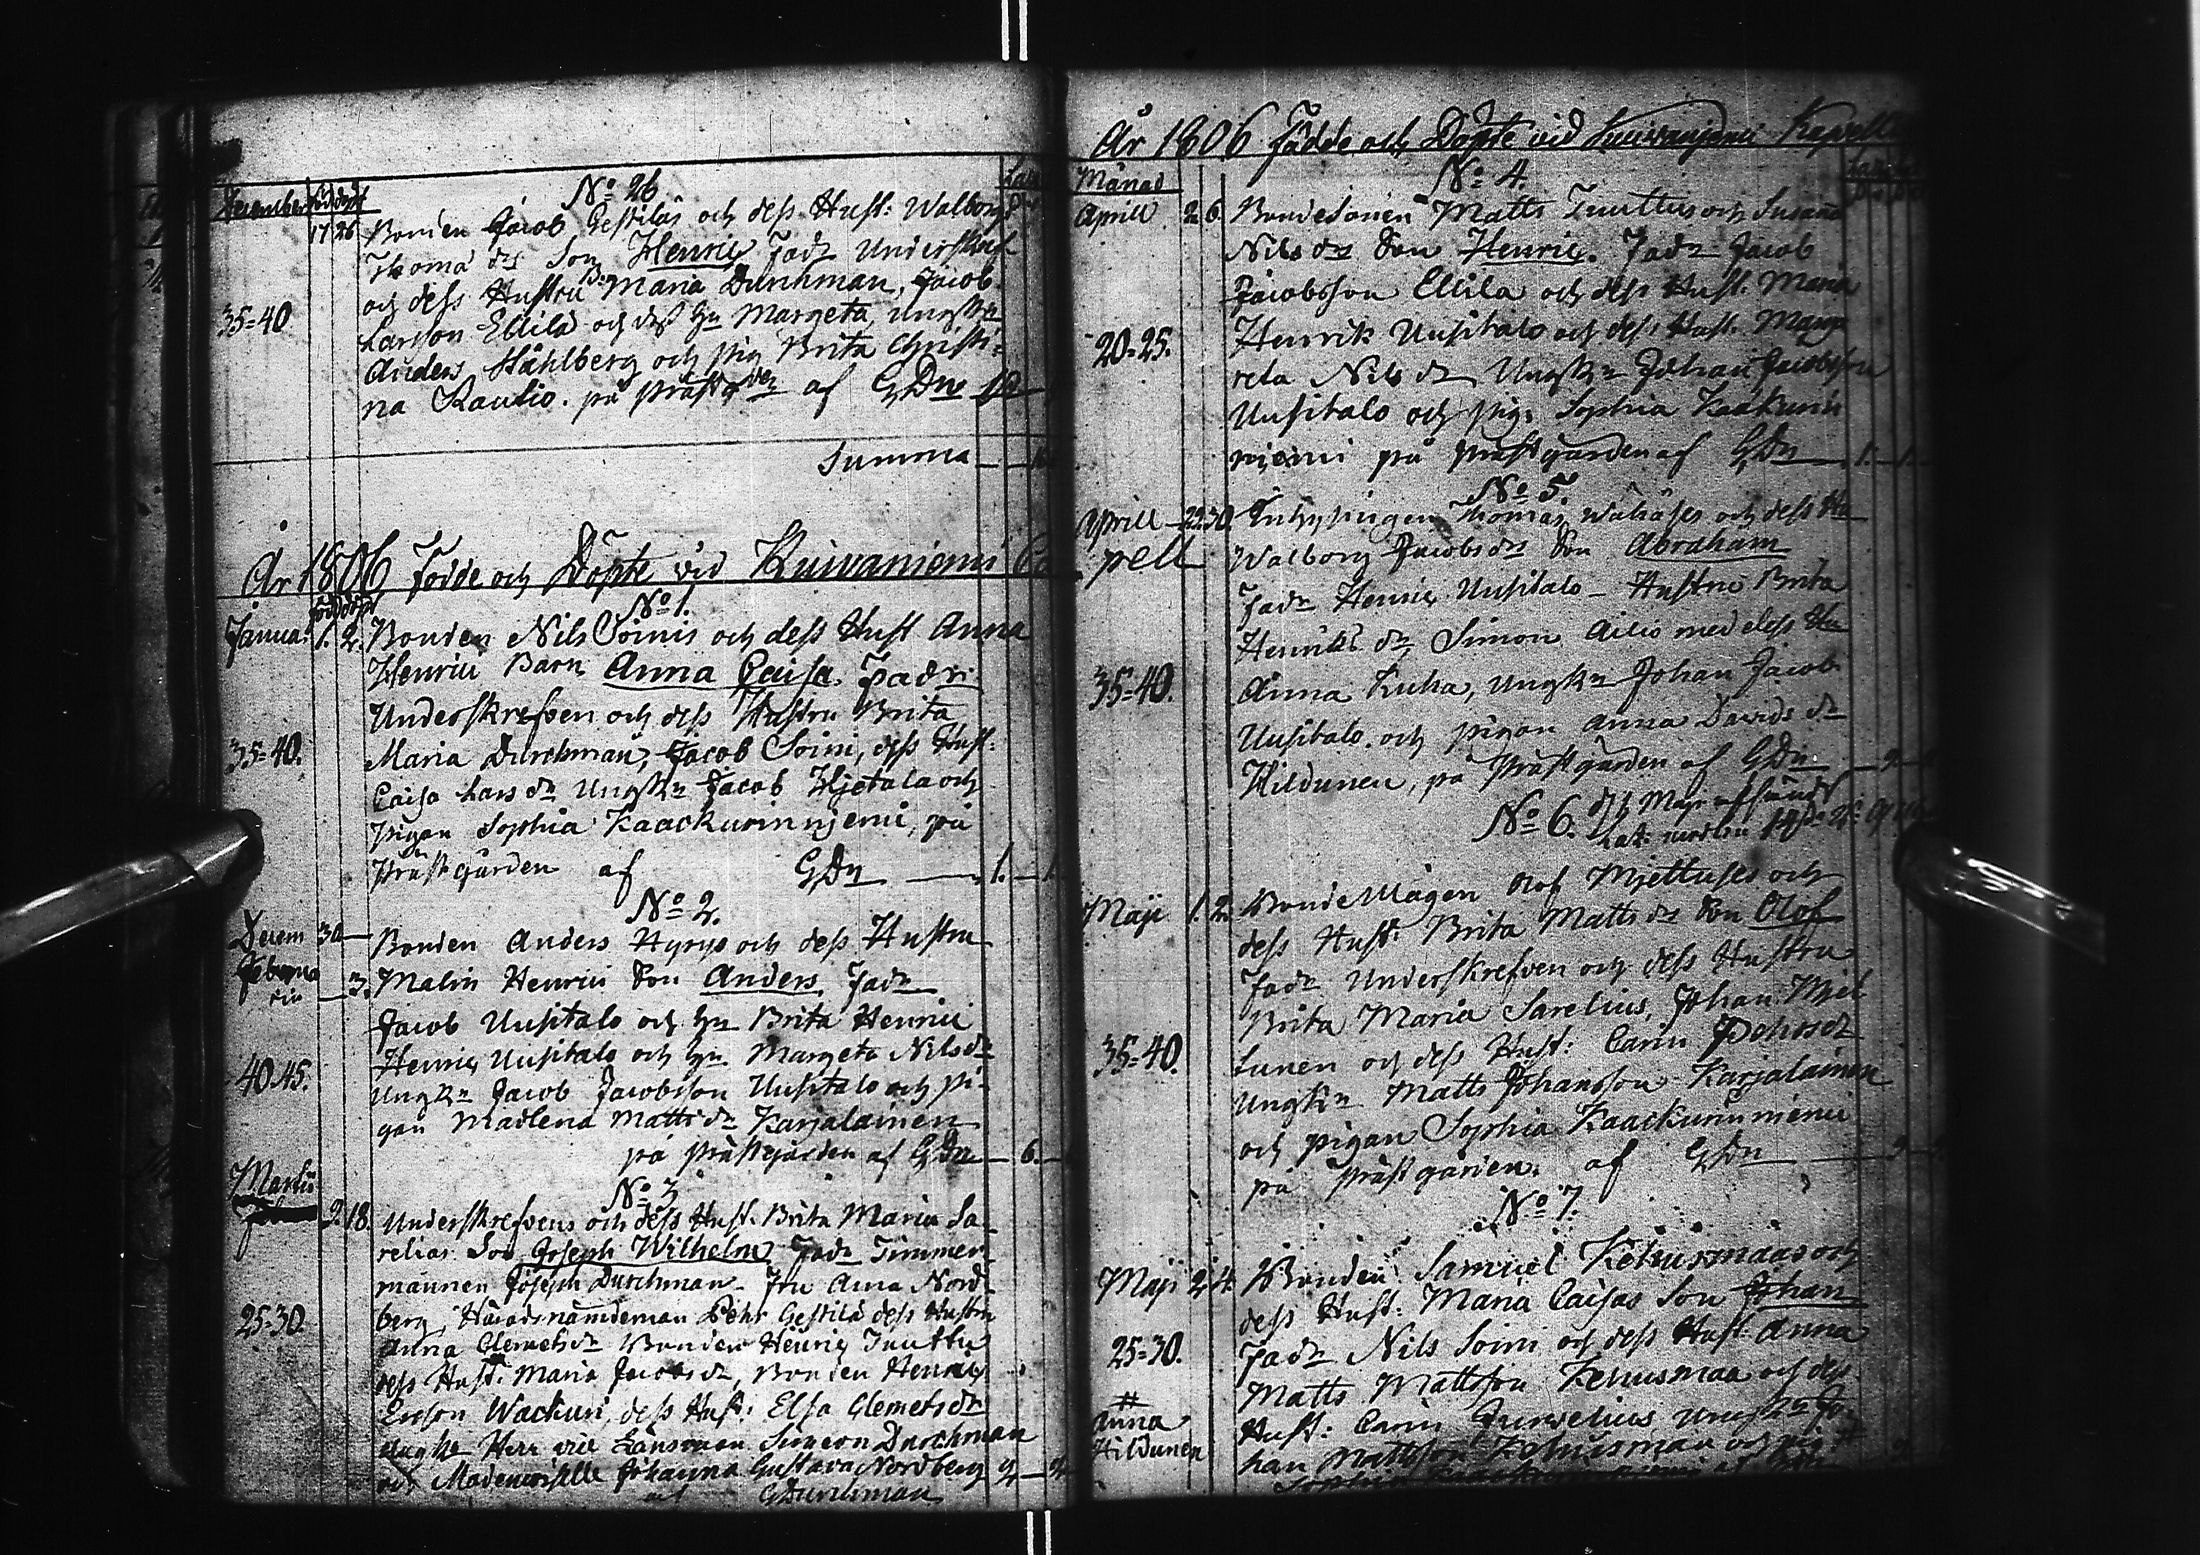 December född döpt
No 26
17 26 Bonden Jacob Gestiläs och dess Hust: Walborg
Thomæ dr Son Henric Fadr Underskref
och dess Hustru B: Maria Durchman, Jacob
35=40
Larsson Ellilä och dess hu Margeta, ungkn
Anders Ståhlberg och pig Brita Christi=
na Kautio. på prästg den af GDn
Summa
År 1806 Födde och Döpte vid Kuivaniemi
född döpt
No 1.
Janua: 1. 2. Bonden Nils Soinis och dess Hust Anna
Henrici Barn Anna Caisa. Fadr:
Underskrefven och dess Hustru Brita
35=40.
Maria Durchman, Jacob Soini, dess Hust:
Caisa Lars dr Ungkn Jacob Hjetala och
pigan Sophia Kaackurinnjemi, på
Prästgården af GDn 1. 1.
No 2.
Decem 30 Bonden Anders Hyrys och dess Hustru
Februa
rii 3. Malin Henrici Son Anders Fadr
Jacob Uusitalo och hu Brita Henrici
Henric Uusitalo och hu Margeta Nilsdr
40.45.
Ungkn Jacob Jacobsson Uusitalo och pi-
gan Madlena Mattsdr Karjalainen
på prästgården af GDn 6.
Martii
No 3
2. 18. Underskrefvens och dess Hust. Brita Maria Sa
relias Son Joseph Wilhelm Fadr Timmer
mannen Joseph Durchman Fru Anna Nord
berg, Häradsnämdeman Pehr Gestilä dess Hustru
25=30.
Anna Clemetsdr Bonden Henric Tuuttu
dess Hust. Maria Jacobsdr, Bonden Henric
Ericson Wackuri, dess Hust: Elsa Clemetsdr
Ungkn Herr vice Länsman Simeon Durchman
och Mademoiselle Johanna Gustava Nordberg
af GDurchman
År 1806 Födde och Döpte vid Kuivanjemi Kapell
Månad
No 4.
Aprill 2 6. Bondesonen Matts Tuuttus och Susanna
Nils dr Son Henric. Fadr Jacob
Jacobsson Ellilä och dess Hust. Maria
Henrik Uusitalo och dess Hust. Marga
20=25.
reta Nils dr Ungkn Johan Jacobsson
Uusitalo och pig: Sophia Kaakurin
njemi på prästgården af GDn 1. 1.
No 5.
Aprill 22 30. Inhysingen Thomas och dess Hu
pell
Walborg Jacobsdr Son Abraham
Fadr Henric Uusitalo - Hustru Brita
Henriks dr, Simon Ailio med dess Hu
35=40.
Anna Kuha, Ungkn Johan Jacob
Uusitalo. och pigan Anna Davids dr
Hildunen, på Prästgården af GDn
No 6.
Maji 1. 2. Bonde Mågen Olof Mjettuses och
dess Hust: Brita Matts dr Son Olof
Fadr Underskrefven och dess Hustru
Brita Maria Sarelius, Johan Mjet
tunen och dess Hust: Carin Pehrsdr
35=40.
Ungkn Matts Johansson Karjalainen
och pigan Sophia Kaackurinniemi
på Prästgården. af GDn
No 7.
Maji 2 4. Bonden Samuel Kehusmaas och
dess Hust: Maria Caisas Son Johan
Fadr Nils Soini och dess Hust: Anna
25=30.
Matts Mattsson Kehusmaa och dess
#
Anna
Hildunen
Hust: Carin Ungkn Jo
han Mattsson Kehusmaa och pig #